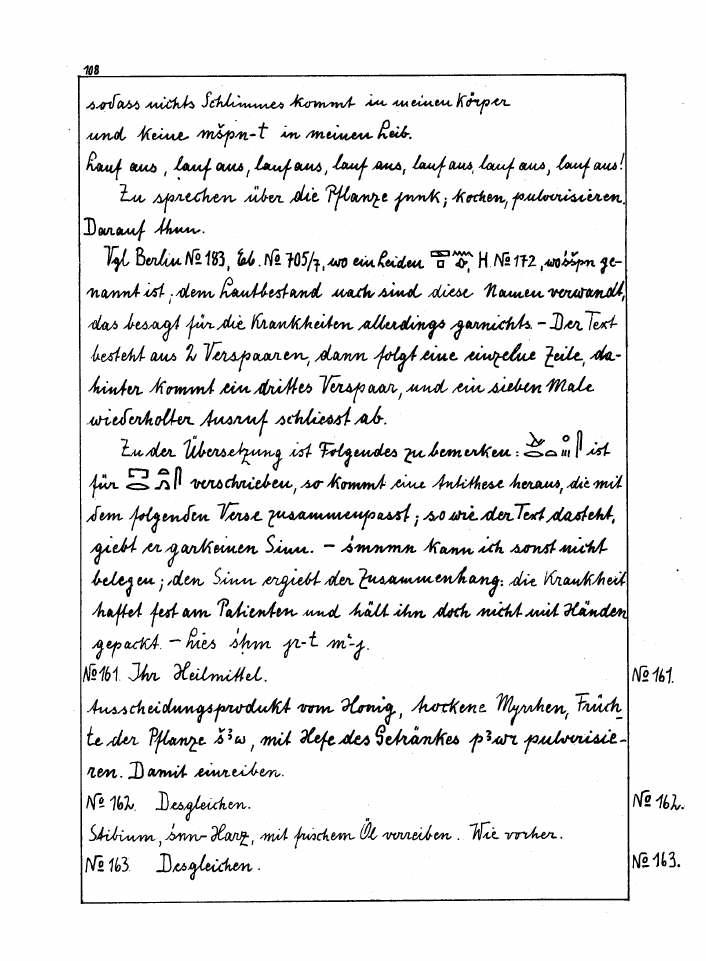 108
sodass nichts Schlimmes kommt in meinen Körper
und keine mšpn-t in meinen Leib.
Lauf aus, lauf aus, lauf aus, lauf aus, lauf aus, lauf aus, lauf aus!
Zu sprechen über die Pflanze jnnk; kochen, pulverisieren.
Darauf thun.
Vgl Berlin No 183, Eb. No 705/7, wo ein Leiden, H. No 172, wo śšpn ge-
nannt ist; dem Lautbestand nach sind diese Namen verwandt,
das besagt für die Krankheiten allerdings garnichts. - Der Text
besteht aus 2 Verspaaren, dann folgt eine einzelne Zeile, da-
hinter kommt ein drittes Verspaar, und ein sieben Male
wiederholter Ausruf schliesst ab.
Zu der Übersetzung ist Folgendes zu bemerken: ist
für verschrieben, so kommt eine Antithese heraus, die mit
dem folgenden Verse zusammenpasst; so wie der Text dasteht,
giebt er garkeinen Sinn. - śmnmn kann ich sonst nicht
belegen; den Sinn ergiebt der Zusammenhang: die Krankheit
haftet fest am Patienten und hält ihn doch nicht mit Händen
gepackt. - Lies śḫm jr-t mʿ-j.
No 161. Ihr Heilmittel. No 161.
Ausscheidungsprodukt vom Honig, trockene Myrrhen, Früch-
te der Pflanze š³w, mit Hefe des Getränkes p³wr pulverisie-
ren. Damit einreiben.
No 162. Desgleichen. No 162.
Stibium, śnn-Harz, mit frischem Öl verreiben. Wie vorher.
No 163. Desgleichen. No 163.